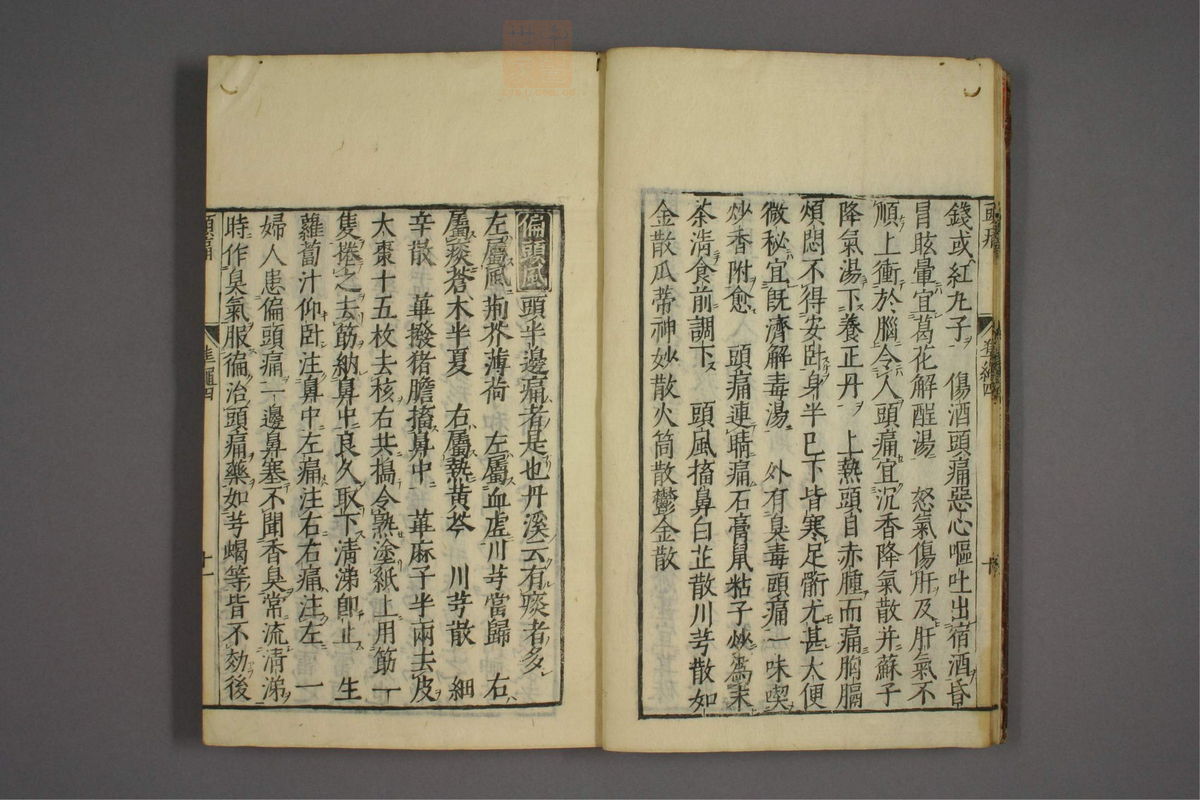 錢或紅丸子　傷酒頭痛惡心嘔吐出宿酒昏
冒眩暈宜葛花解酲湯　怒氣傷肝及肝氣不
順上衝於腦令人頭痛宜沉香降氣散并蘇子
降氣湯下養正丹　上熱頭目赤腫而痛胸膈
煩悶不得安臥身半已下皆寒足䯒尤甚大便
微秘宜既濟解毒湯　外有臭毒頭痛一味喫
炒香附愈　頭痛連睛痛石膏鼠粘子炒爲末
茶清食前調下　頭風搐鼻白芷散川芎散如
金散瓜蒂神妙散火筒散鬱金散
偏頭風 頭半邊痛者是也丹溪云有痰者多
左屬風荊芥薄荷　左屬血虛川芎當歸　右
屬痰蒼朮半夏　右屬熱黃芩　川芎散　細
辛散　蓽撥猪膽搐鼻中　萆麻子半兩去皮
大棗十五枚去核右共搗令熟塗紙上用筯一
隻捲之去筯納鼻中良久取下清涕即止　生
蘿蔔汁仰臥注鼻中左痛注右右痛注左　一
婦人患偏頭痛一邊鼻塞不聞香臭常流清涕
時作臭氣服徧治頭痛藥如芎蝎等皆不効後
頭痛
準繩四
十一